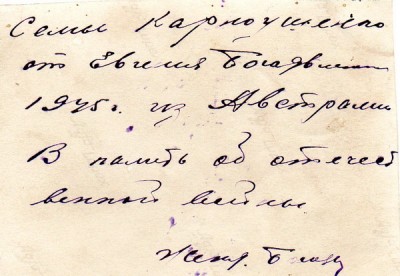 Семьи Карноушенко
от Евгения Богоявлен
1945г. из Австралии
В память об отечест
венной войны.
Женя.